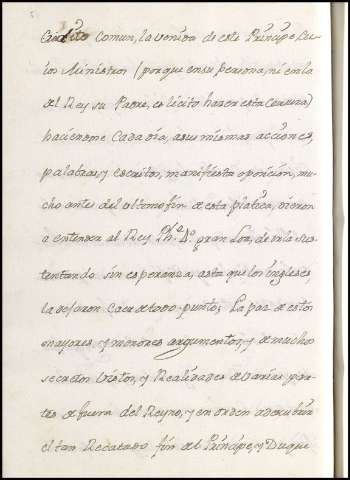 Crédito comun, la venida de este Principe cu-
ios Ministros (porque en su persona, ni en la
del Rey su Padre, es licito hazer esta Censura)
haciendome Cada dia, a sus mismas acciones,
palabras, y escritos, manifiesta oposicion, mu-
cho antes del ultimo fin de esta platica, dieron
a entender al Rey Ph.e 4.o gran Loa, de irla sus-
tentando sin esperanza, asta que los Ingleses,
la dejaron Caer de todo punto; La paz de estos
mayores, y menores argumentos, y de muchos
secretos Vistos, y Realidades de varias par-
tes de fuera del Reyno, y en orden a descubrir
el tan Recatado fin del Principe, y Duque